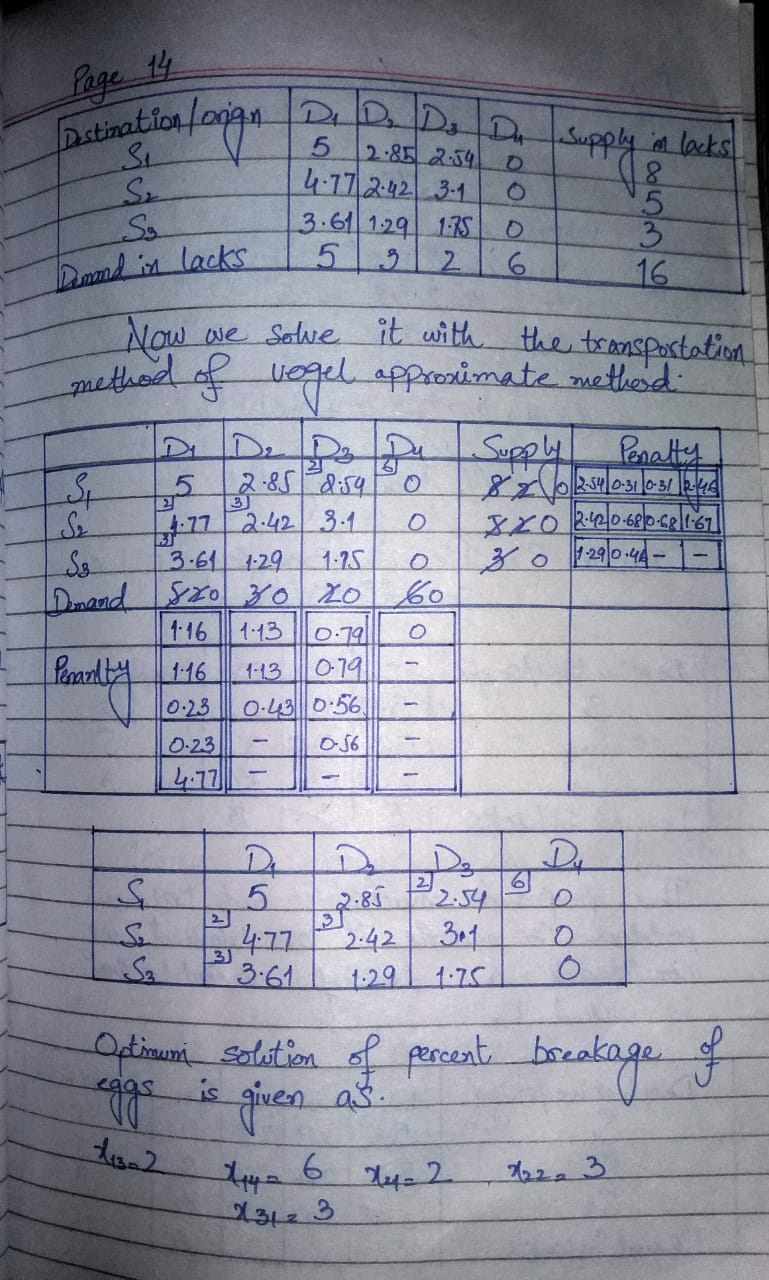 Page 14
Destination/orign D1 D2 D3 D4 Supply in lacks
S1 5 2.85 2.54 0 8
S2 4.77 2.42 3.1 0 5
S3 3.61 1.29 1.75 0 3
Demand in lacks 5 3 2 6 16
Now we solve it with the transportation
method of vogel approximate method.
D1 D2 D3 D4 Supply Penalty
S1 5 2.85 2 2.54 6 0 8 2 0 2.54 0.31 0.31 2.46
S2 2 4.77 3 2.42 3.1 0 5 2 0 2.42 0.68 0.68 1.67
S3 3 3.61 1.29 1.75 0 3 0 1.29 0.46 - -
Demand 5 2 0 3 0 2 0 6 0
1.16 1.13 0.79 0
Penanlty 1.16 1.13 0.79 -
0.23 0.43 0.56 -
0.23 - 0.56 -
4.77 - - -
D1 D2 D3 D4
S1 5 2.85 2 2.54 6 0
S2 2 4.77 3 2.42 3.1 0
S3 3 3.61 1.29 1.75 0
Optimum solution of percent breakage of
eggs is given as.
x13=2 x14= 6 x21=2 x22= 3
x31= 3